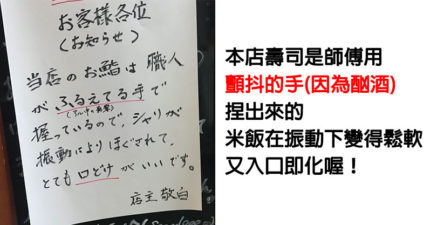 お客様各位
(お知らせ)
当店のお鮨は 職人
が ふるえてる手で
握っているので、シャリが
振動によりほぐされて、
とても口どけがいいです。
店主 敬白
本店壽司是師傅用
顫抖的手(因為酗酒)
捏出來的
米飯在振動下變得鬆軟
又入口即化喔！